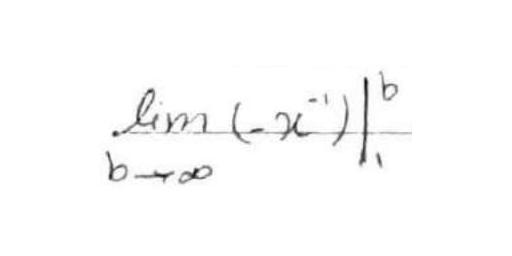 \lim_{b \to \infty} (-x^{-1}) \Big|_{1}^{b}